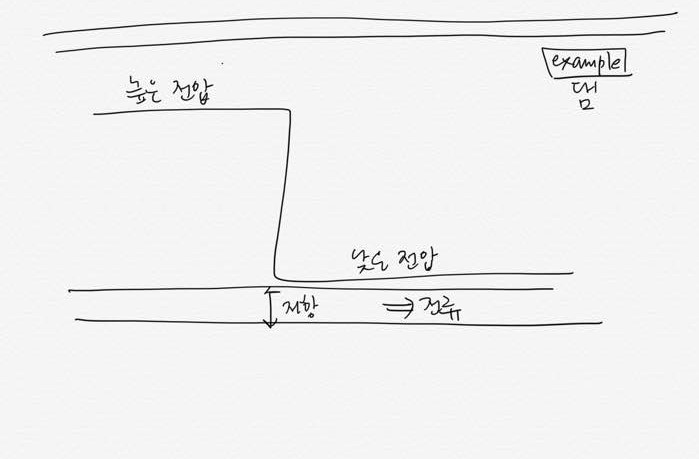 example
댐
높은 전압
낮은 전압
저항
⇒ 전류